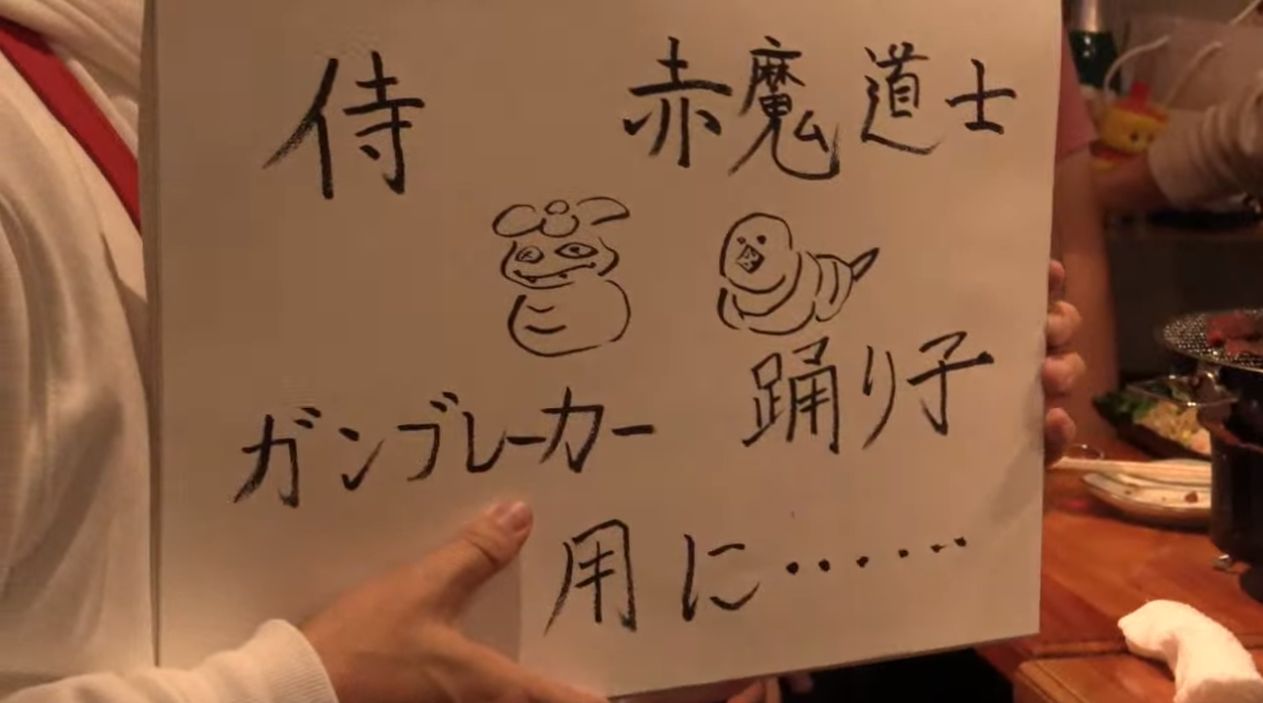 侍 赤魔道士
ガンブレーカー 踊り子
用に……